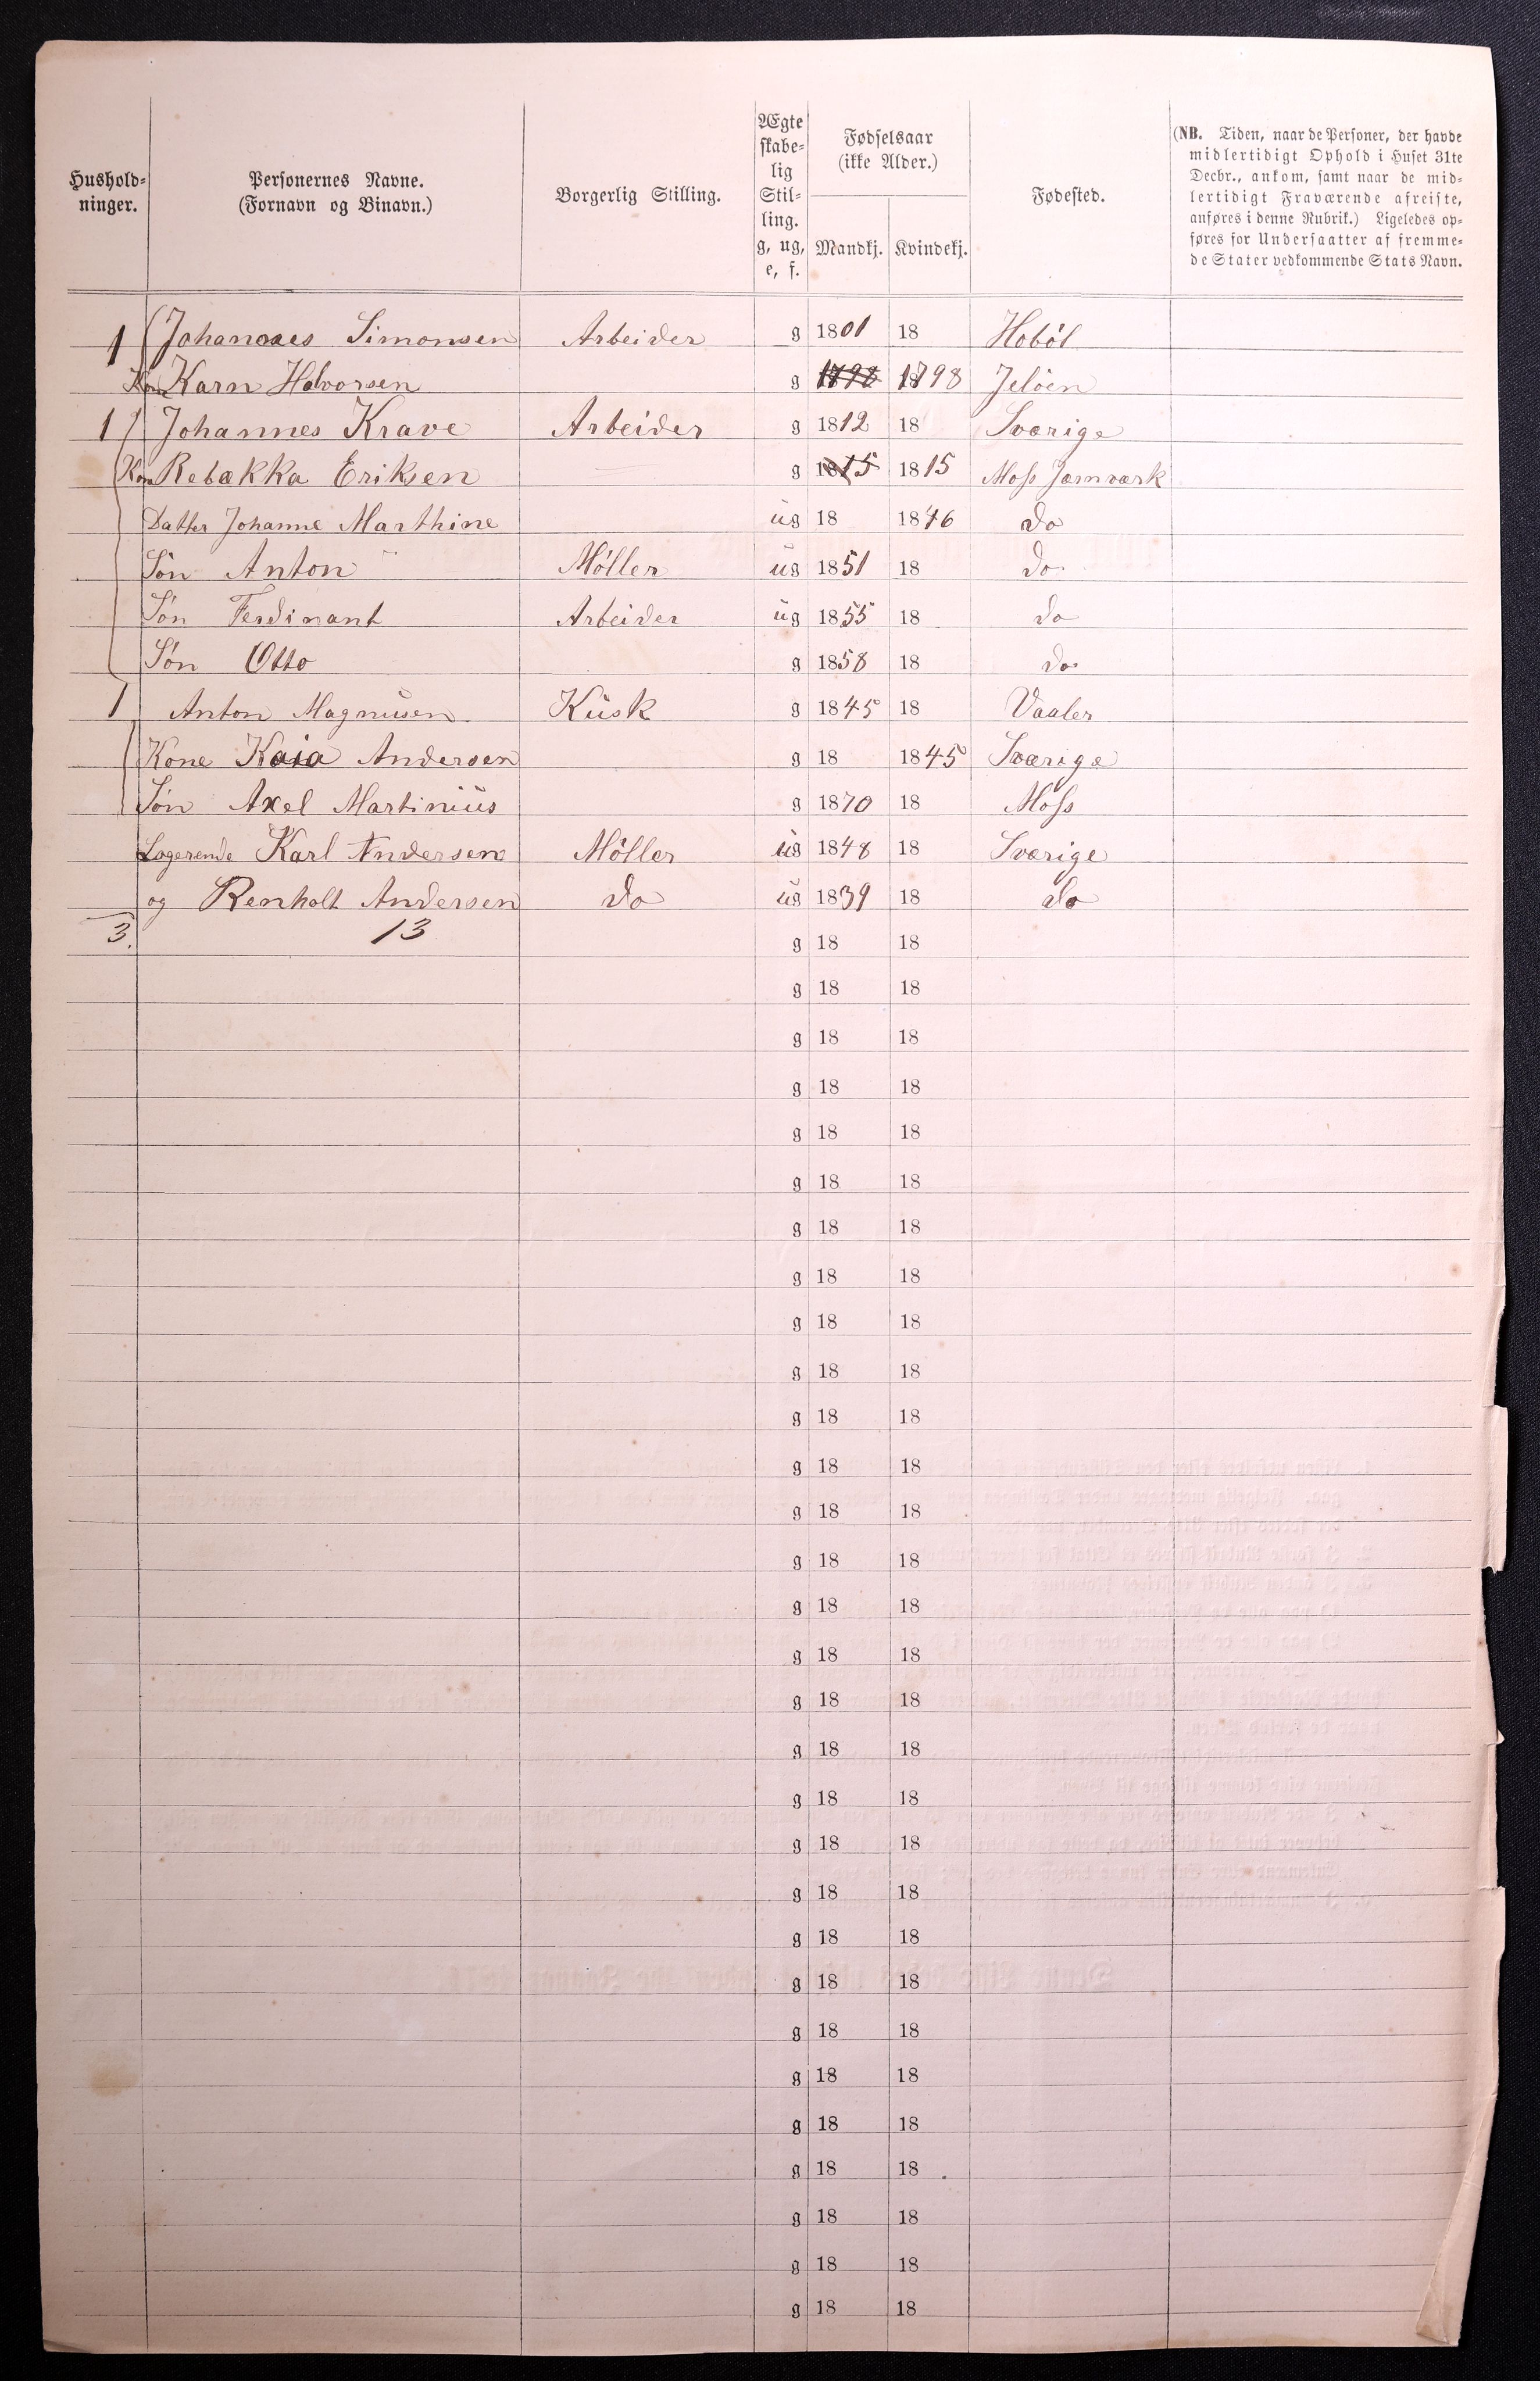 Hushold-
ninger.
Personernes Navne.
(Fornavn og Binavn.)
Borgerlig Stilling.
Ægte
skabe-
lig
Stil-
ling.
g, ug,
e, f.
Fødselsaar
(ikke Alder.)
Mandkj. Kvindekj.
Fødested.
(NB. Tiden, naar de Personer, der havde
midlertidigt Ophold i Huset 31te
Decbr., ankom, samt naar de mid-
lertidigt Fraværende afreiste,
anføres i denne Rubrik.) Ligeledes op-
føres for Undersaatter af fremme-
de Stater vedkommende Stats Navn.
1 Johannes Simonsen Arbeider g 1801 18 Hobøl
Kon Karn Halvorsen g 1798 1798 Jeløen
1 Johannes Krave Arbeider g 1812 18 Sværige
Kon Rebækka Eriksen g 1815 1815 Moss Jærnværk
Datter Johanne Marthine ug 18 1846 do
Søn Anton Møller ug 1851 18 do
Søn Ferdinant Arbeider ug 1855 18 do
Søn Otto g 1858 18 do
1 Anton Magnusen Kusk g 1845 18 Vaaler
Kone Kaia Andersen g 18 1845 Sværige
Søn Axel Martinius g 1870 18 Moss
Logerende Karl Andersen Møller ug 1848 18 Sværige
og Renholt Andersen do ug 1839 18 do
3. 13 g 18 18
g 18 18
g 18 18
g 18 18
g 18 18
g 18 18
g 18 18
g 18 18
g 18 18
g 18 18
g 18 18
g 18 18
g 18 18
g 18 18
g 18 18
g 18 18
g 18 18
g 18 18
g 18 18
g 18 18
g 18 18
g 18 18
g 18 18
g 18 18
g 18 18
g 18 18
g 18 18
g 18 18
g 18 18
g 18 18